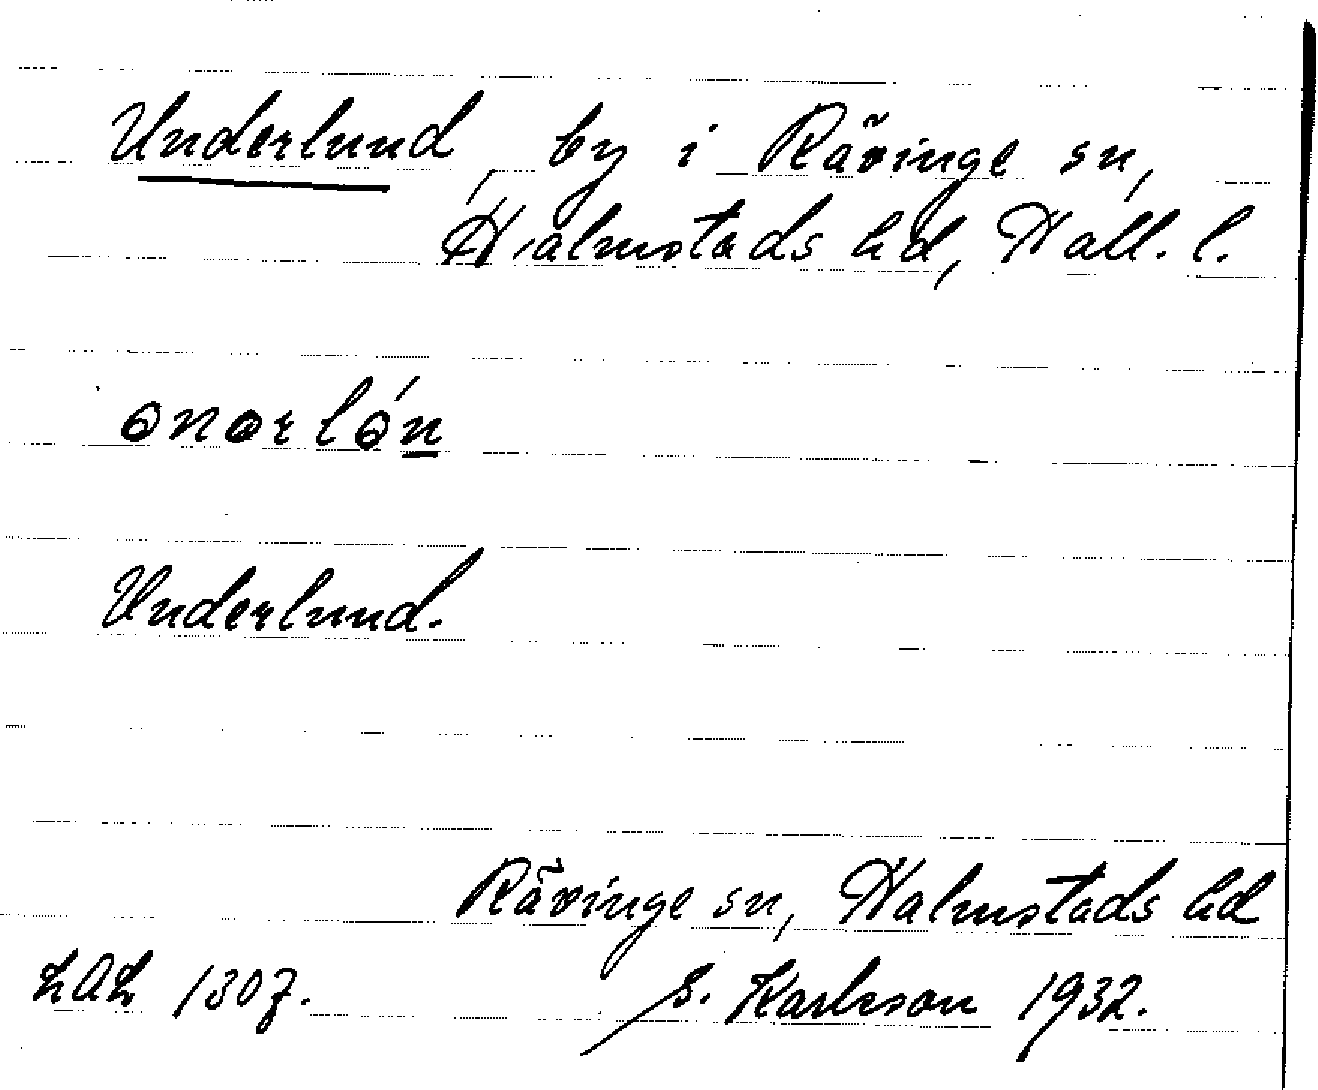 Underlund, by i Rävinge sn,
Halmstads hd, Hall. l.
ɵnɵrlɵ́n
Underlund.
Rävinge sn, Halmstads hd
LAL 1307. S. Karlsson 1932.